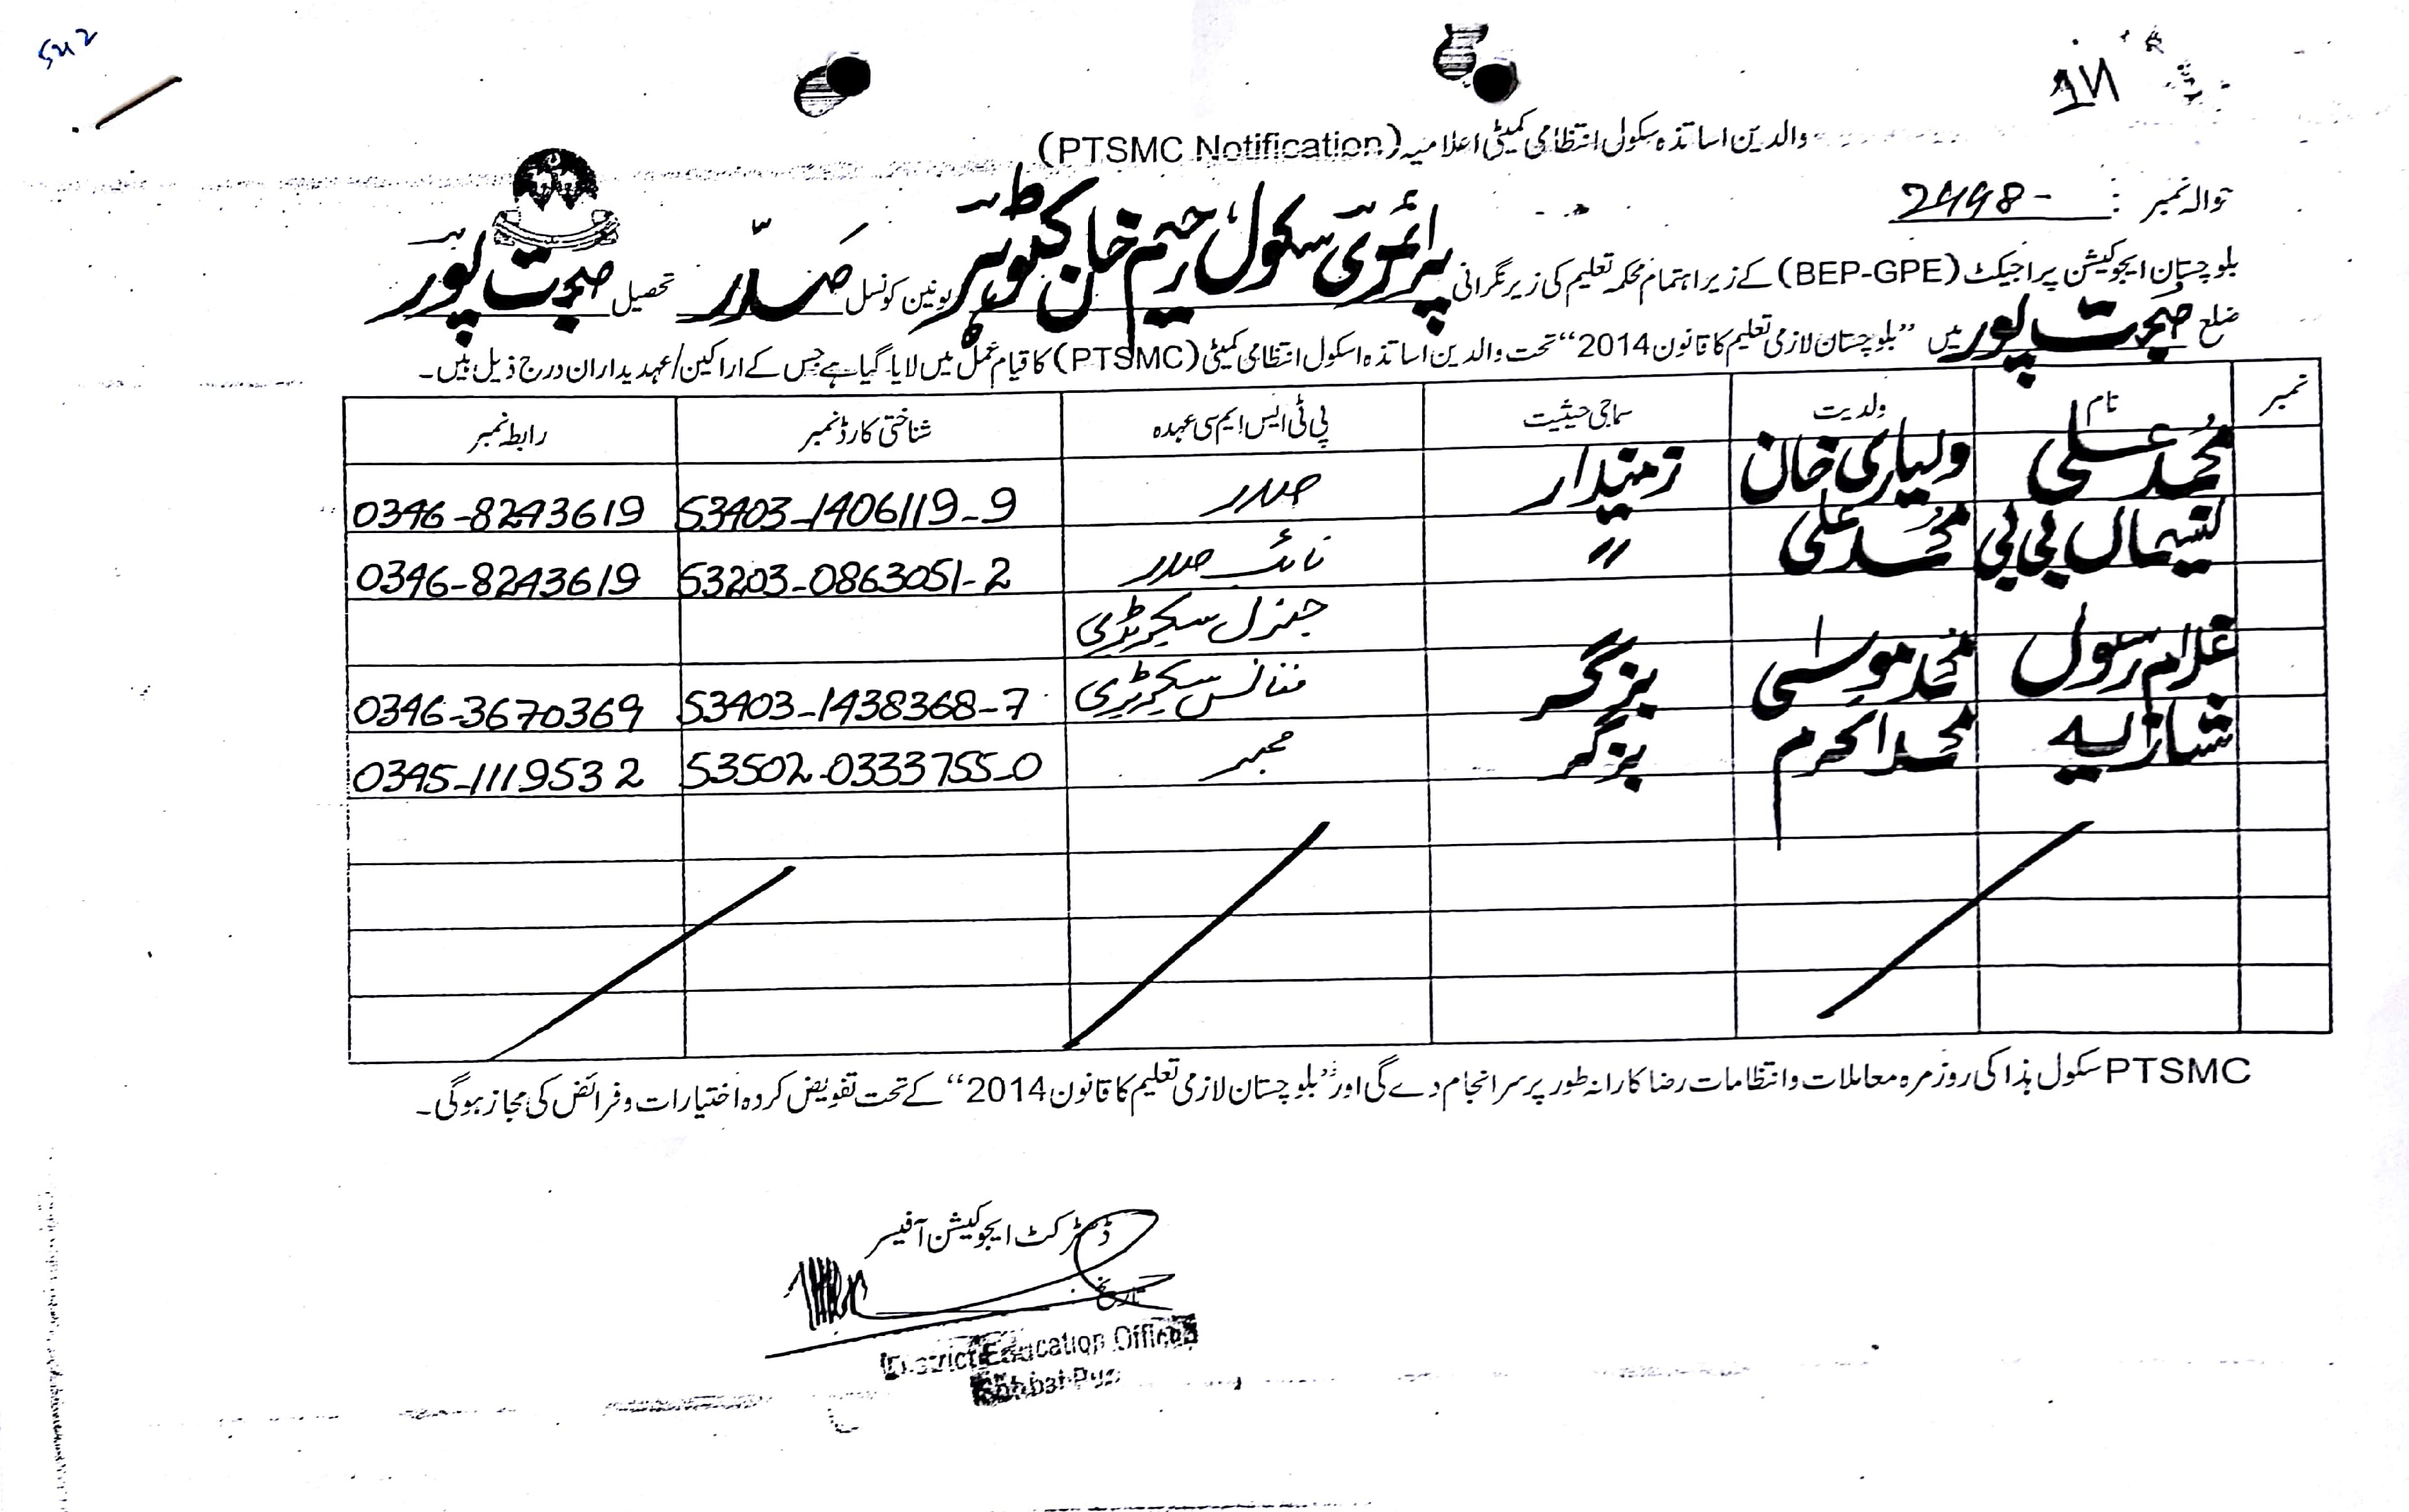 542
والدین اساتذہ سکول انتظامی کمیٹی اعلامیہ (PTSMC Notification)
حوالہ نمبر : 2498-
بلوچستان ایجوکیشن پراجیکٹ (BEP-GPE) کے زیر اہتمام محکمہ تعلیم کی زیر نگرانی پرائمری سکول رحیم خان کھوسہ یونین کونسل صدر تحصیل صحبت پور
ضلع صحبت پور میں ”بلوچستان لازمی تعلیم کا قانون 2014“ تحت والدین اساتذہ اسکول انتظامی کمیٹی (PTSMC) کا قیام عمل میں لایا گیا ہے جس کے اراکین/عہدیداران درج ذیل ہیں۔
نمبر نام ولدیت سماجی حیثیت پی ٹی ایس ایم سی عہدہ شناختی کارڈ نمبر رابطہ نمبر
محمد علی ولیاری خان زمیندار صدر 53403-1406119-9 0346-8243619
بی بی محمد علی 〃 نائب صدر 53203-0863051-2 0346-8243619
جنرل سیکریٹری
غلام رسول محمد موسیٰ بزگر فنانس سیکریٹری 53403-1438368-7 0346-3670369
شازیہ محمد اکرم بزگر ممبر 53502-0333755-0 0345-1119532
PTSMC سکول ہذا کی روزمرہ معاملات و انتظامات رضا کارانہ طور پر سرانجام دے گی اور ”بلوچستان لازمی تعلیم کا قانون 2014“ کے تحت تفویض کردہ اختیارات و فرائض کی مجاز ہوگی۔
ڈسٹرکٹ ایجوکیشن آفیسر
تاریخ
District Education Officer
Sohbat Pur